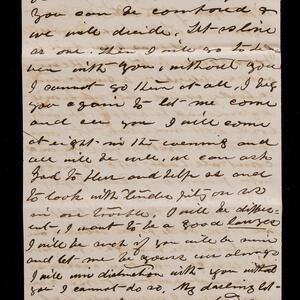 you can be comforted &
we will decide. Let us live
as one. Then I will go to Hea
ven with you, without you
I cannot go there at all, I beg
you again to let me come
and see you I will come
at eight in the evening and
all will be well, we can ask
God to Hear and help us and
to look with tender pity on us
in our trouble. I will be differ
ent, I want to be a good lawyer
I will be such if you will be mine
and let me be yours for always
I will win distinction with you without
you I cannot do so, My darling let